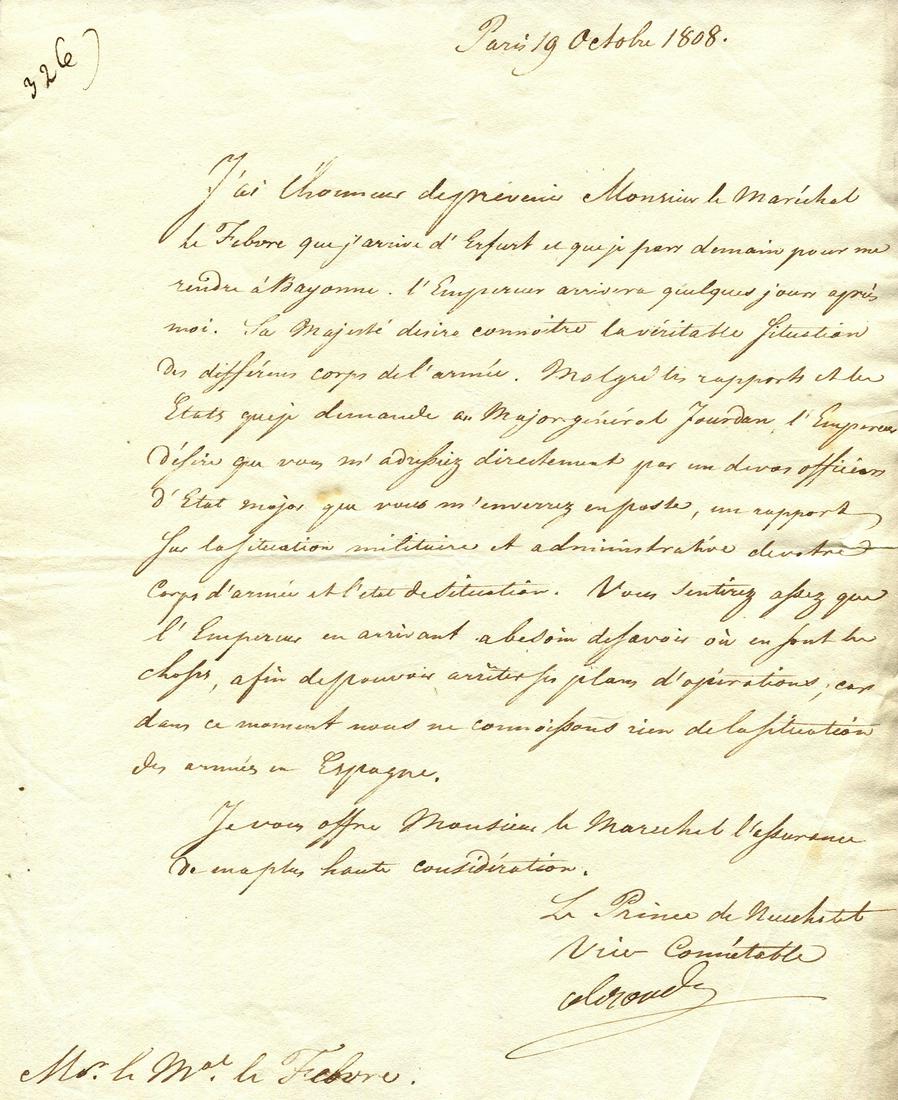 Paris 19 Octobre 1808.
326)
J'ai l'honneur de prévenir Monsieur le Maréchal
le Febvre que j'arrive d'Erfurt et que je pars demain pour me
rendre à Bayonne. l'Empereur arrivera quelques jours après
moi. Sa Majesté désire connoitre la véritable situation
des différens corps de l'armée. Malgré les rapports et les
Etats que je demande au Major général Jourdan, l'Empereur
désire que vous m'adressiez directement par un de vos officiers
d'Etat major que vous m'enverrez en poste, un rapport
sur la situation militaire et administrative de votre
Corps d'armée et l'etat de situation. Vous sentirez assez que
l'Empereur en arrivant a besoin de savoir où en sont les
choses, afin de pouvoir arrêter ses plans d'opérations, car
dans ce moment nous ne connoissons rien de la situation
des armées en Espagne.
Je vous offre Monsieur le Marechal l'assurance
de ma plus haute considération.
Le Prince de Neuchatel
Vice Connétable
Mr. le Mal. le Febvre.